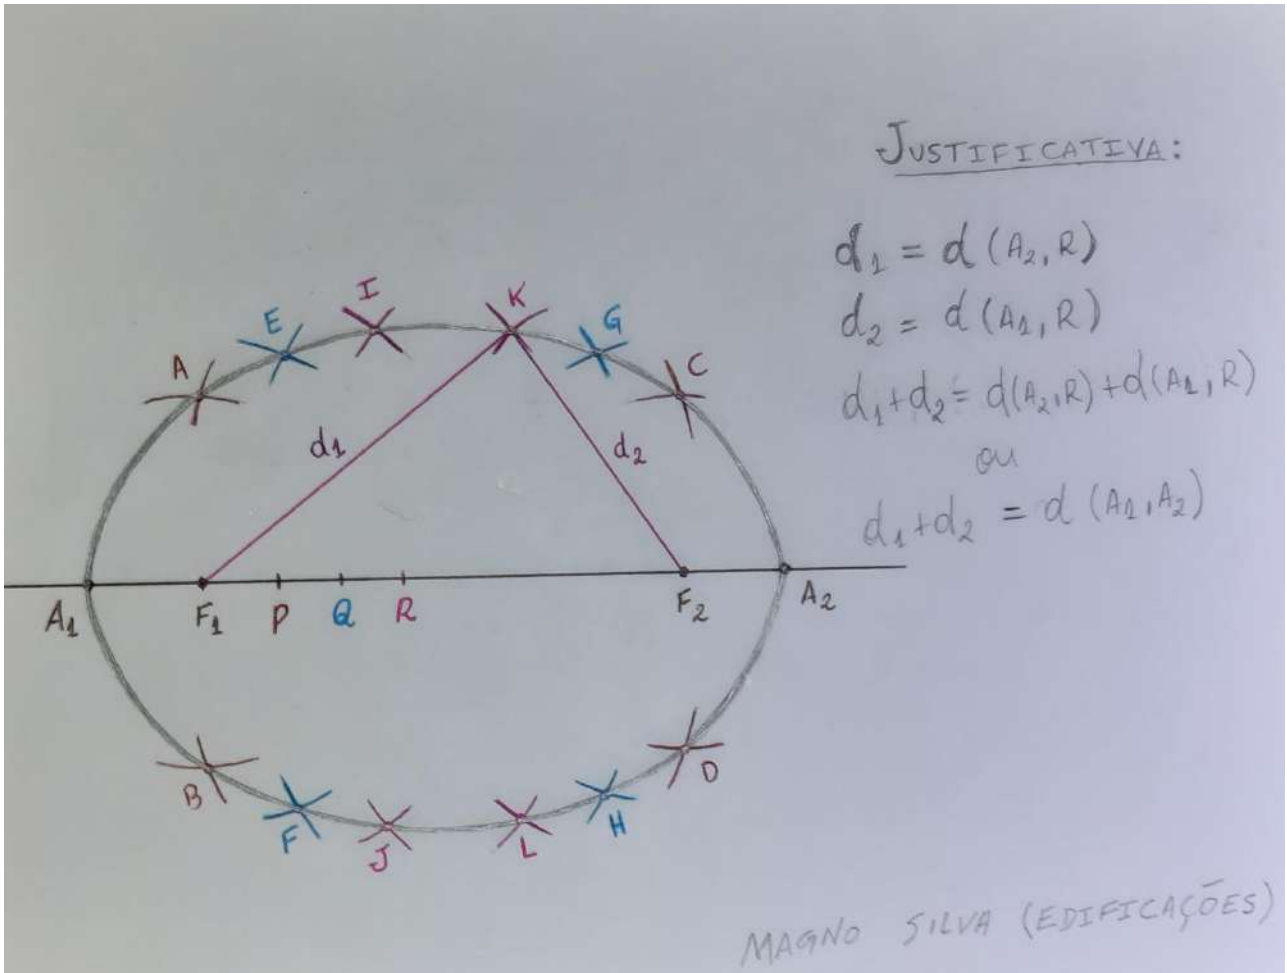 JUSTIFICATIVA:
d₁ = d (A₂, R)
d₂ = d (A₁, R)
d₁+d₂ = d(A₂,R)+d(A₁,R)
ou
d₁+d₂ = d (A₁,A₂)
I K
E G
A C
d₁ d₂
A₁ F₁ P Q R F₂ A₂
B D
F H
J L
MAGNO SILVA (EDIFICAÇÕES)